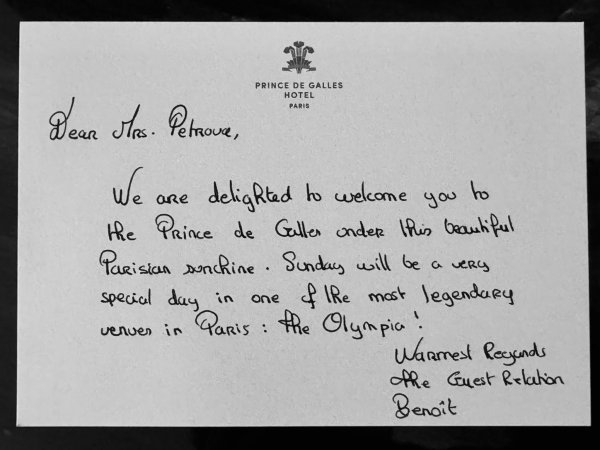 PRINCE DE GALLES
HOTEL
PARIS
Dear Mrs. Petrova,
We are delighted to welcome you to
the Prince de Galles under this beautiful
Parisian sunshine. Sunday will be a very
special day in one of the most legendary
venues in Paris : the Olympia !
Warmest Regards
the Guest Relation
Benoît